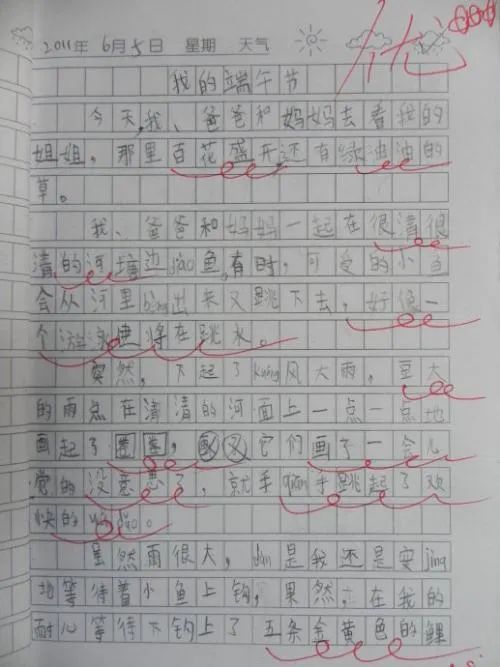 2011年 6月5日 星期 天气 优
我的端午节
今天,我、爸爸和妈妈去看我的
姐姐,那里百花盛开还有绿油油的
草。
我、爸爸和妈妈一起在很清很
清的河塘边jiào鱼,有时,可爱的小鱼
会从河里 出来又跳下去,好像一
个游泳健将在跳水。
突然,下起了kuáng风大雨,豆大
的雨点在清清的河面上一点一点地
画起了圈圈, 它们画了一会儿
觉的没意思了,就手 手跳起了欢
快的 dǎo。
虽然雨很大,dàn是我还是安jìng
地等待着小鱼上钩,果然,在我的
耐心等待下钩上了五条金黄色的鲤